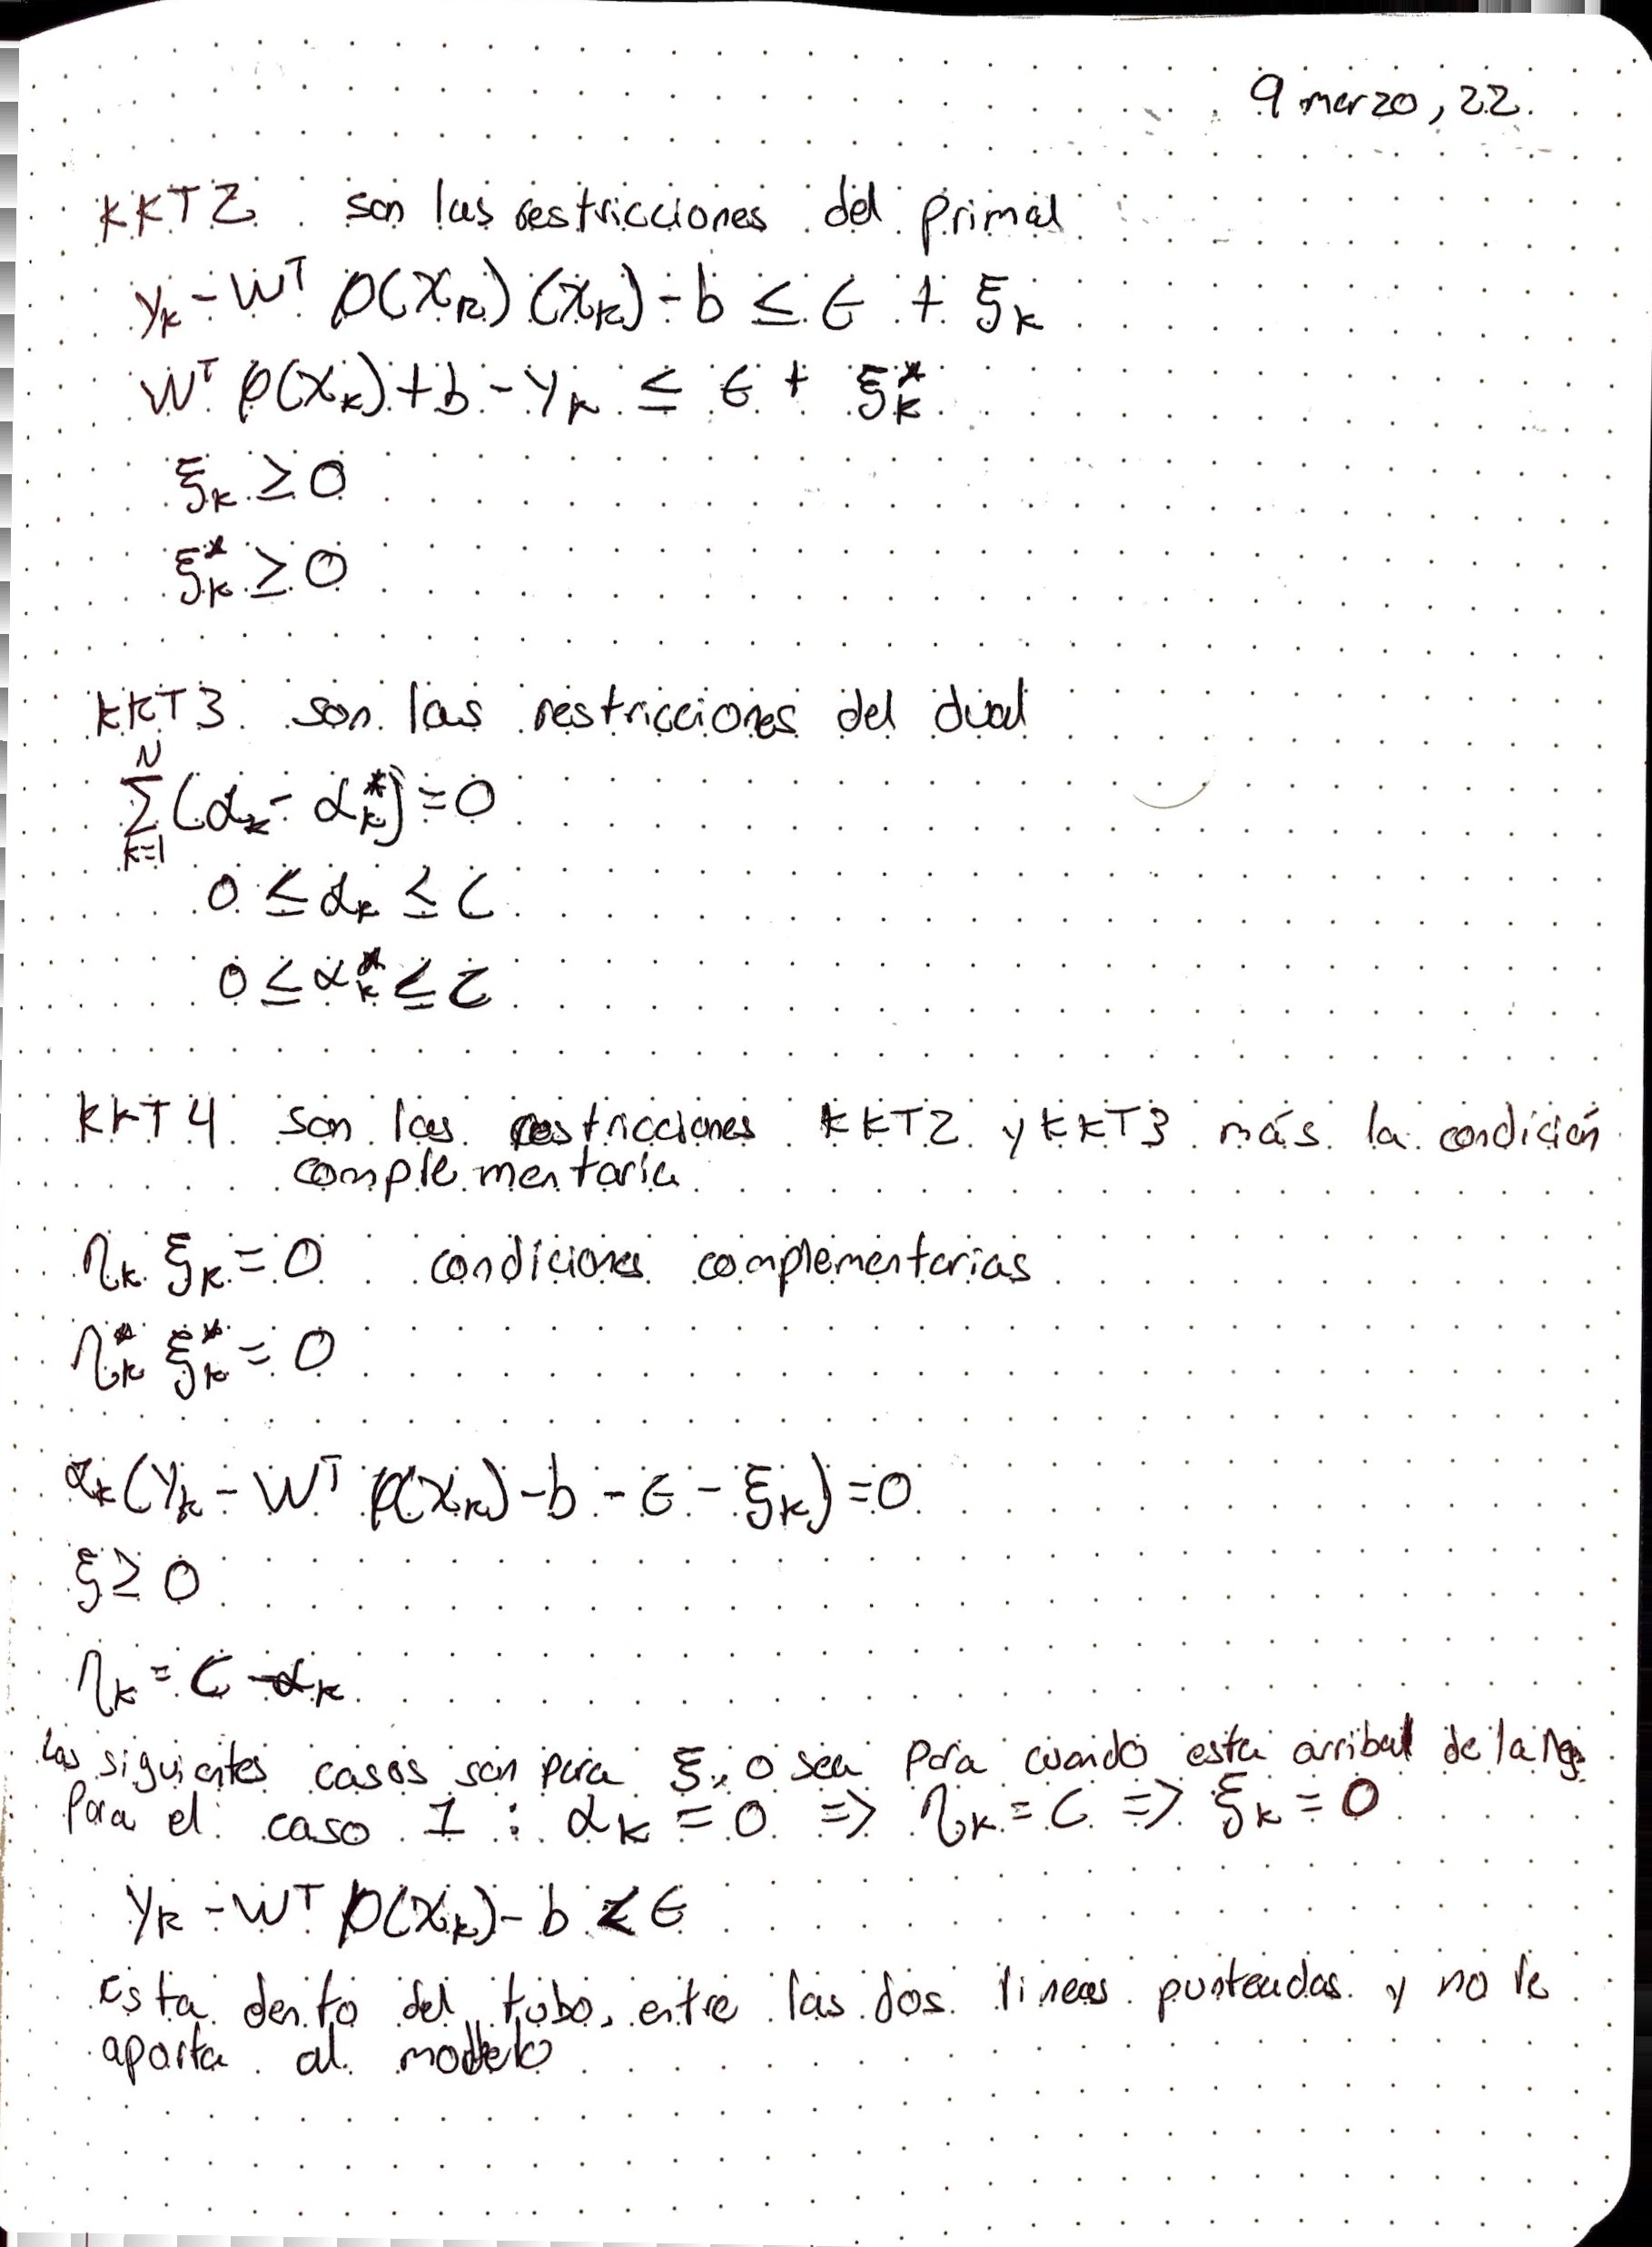 9 marzo, 22.
KKT2 son las restricciones del primal
yₖ - Wᵀ φ(xₖ) (xₖ) - b ≤ ϵ + ξₖ
Wᵀ φ(xₖ) + b - yₖ ≤ ϵ + ξₖ*
ξₖ ≥ 0
ξₖ* ≥ 0
KKT3 son las restricciones del dual
∑ₖ₌₁ᴺ (αₖ - αₖ*) = 0
0 ≤ αₖ ≤ C
0 ≤ αₖ* ≤ C
KKT4 son las restricciones KKT2 y KKT3 más la condición
complementaria
ηₖ ξₖ = 0 condiciones complementarias
ηₖ* ξₖ* = 0
αₖ(yₖ - Wᵀ φ(xₖ) - b - ϵ - ξₖ) = 0
ξ ≥ 0
ηₖ = C - αₖ
Los siguientes casos son para ξ, o sea para cuando esta arriba de la
Para el caso 1 : αₖ = 0 => ηₖ = C => ξₖ = 0
yₖ - Wᵀ φ(xₖ) - b < ϵ
Esta dento del tubo, entre las dos lineas punteadas y no le
aporta al modelo